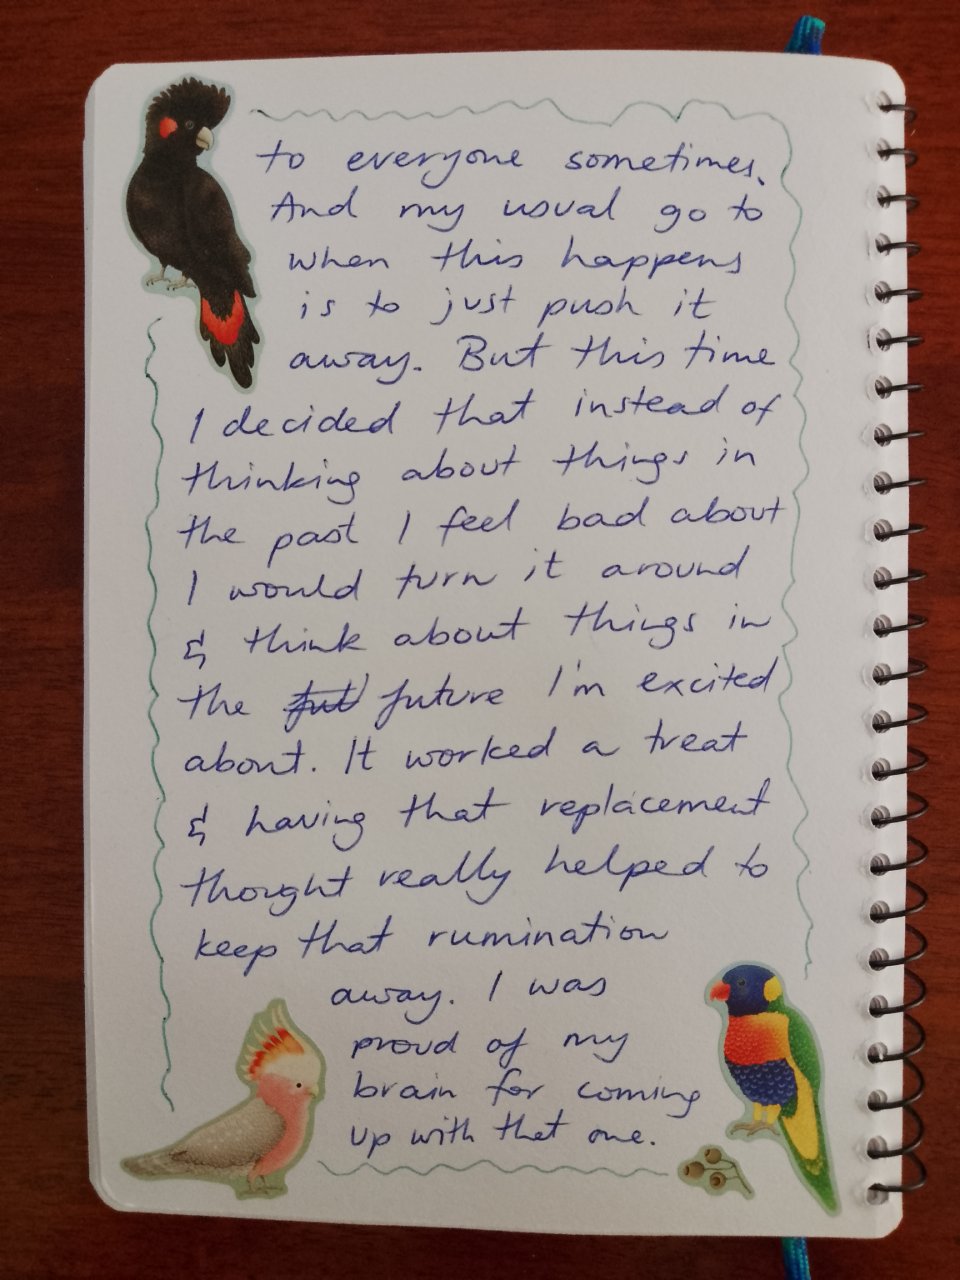 to everyone sometimes.
And my usual go to
when this happens
is to just push it
away. But this time
I decided that instead of
thinking about things in
the past I feel bad about
I would turn it around
& think about things in
the fut future I'm excited
about. It worked a treat
& having that replacement
thought really helped to
keep that rumination
away. I was
proud of my
brain for coming
up with that one.